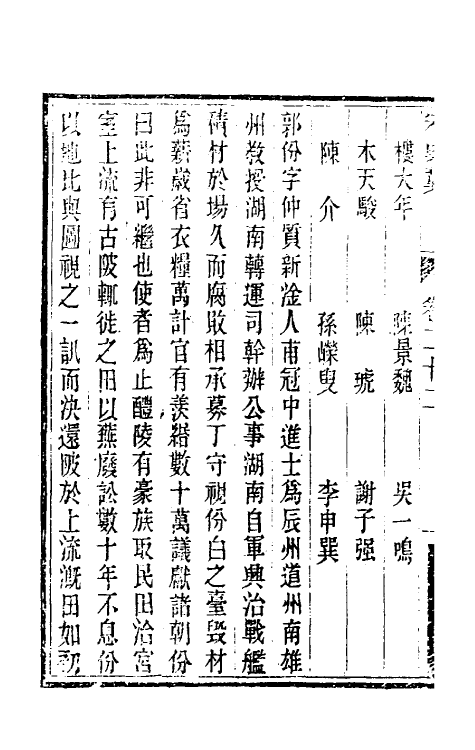 卷二十二
樓大年　陳景魏　吳一鳴
木天駿　陳琥　謝子强
陳介　孫嶸叟　李申巽
郭份字仲質新淦人甫冠中進士爲辰州道州南雄
州敎授湖南轉運司幹辦公事湖南自軍興治戰艦
積材於場久而腐敗相承募丁守視份白之臺毀材
爲薪歲省衣糧萬計官有羨緡數十萬議獻諸朝份
曰此非可繼也使者爲止醴陵有豪族取民田治宮
室上流有古陂輒徙之田以蕪廢訟數十年不息份
以地比與圖視之一訊而決還陂於上流漑田如初